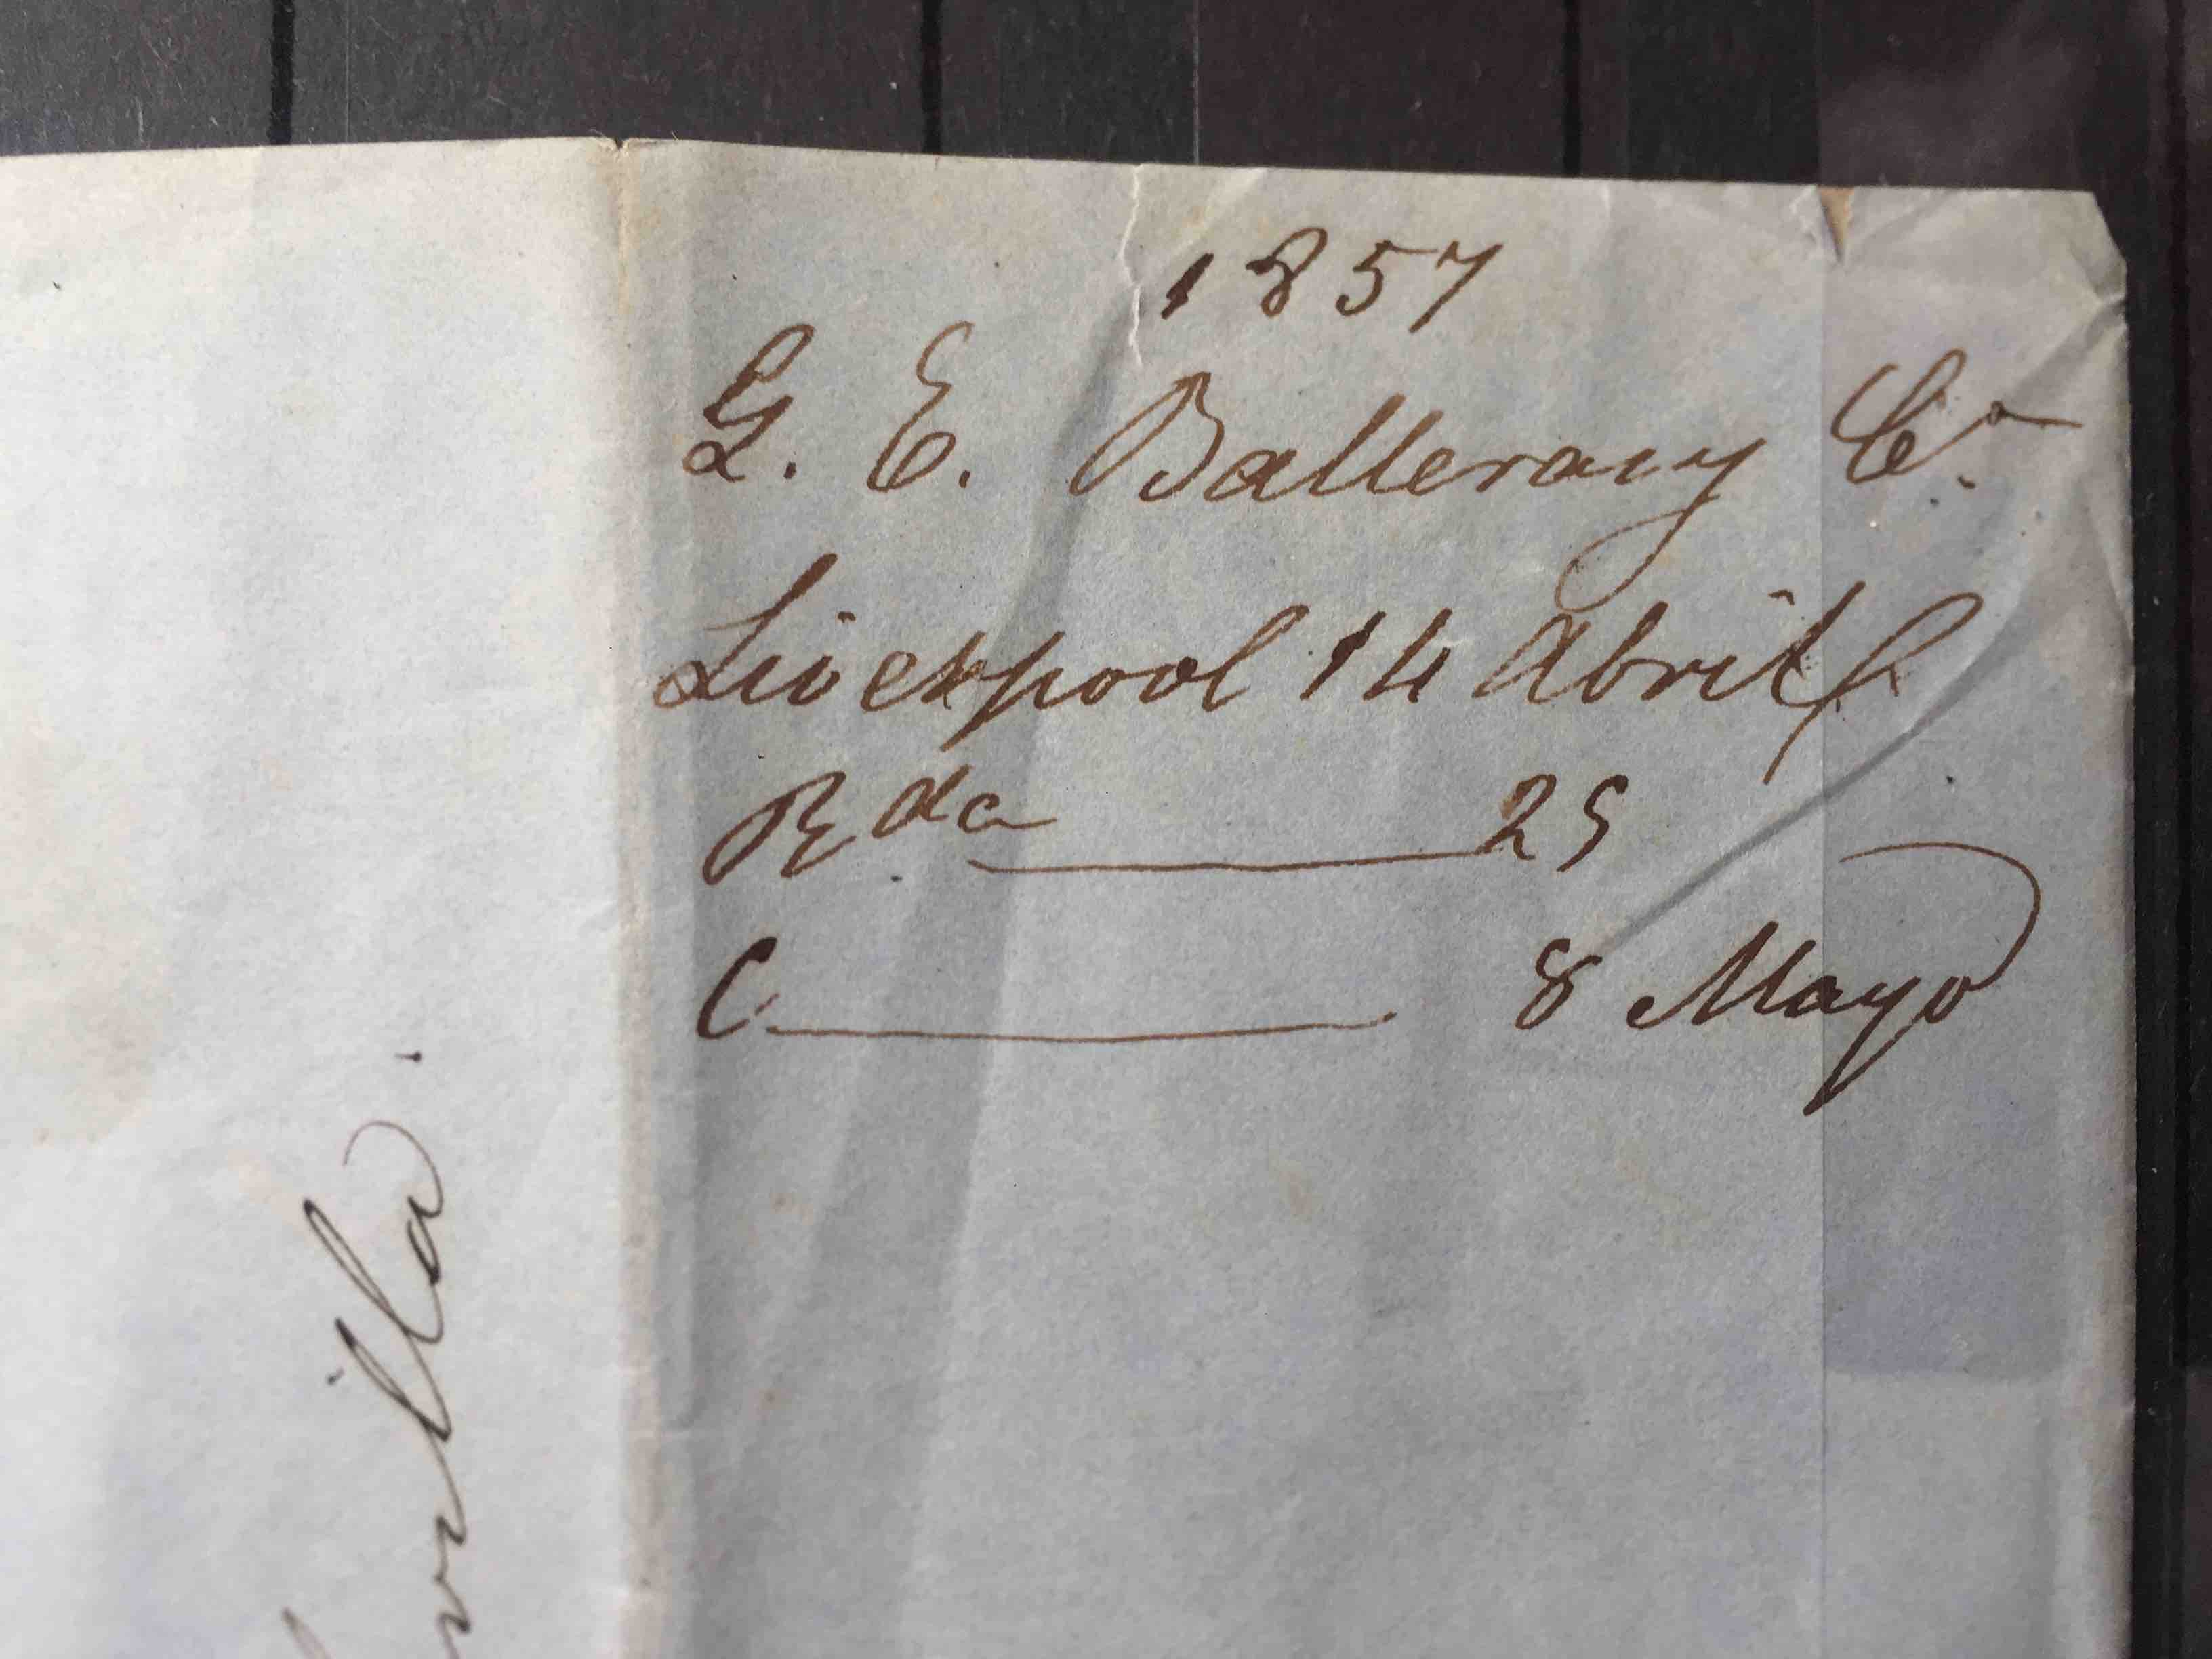 1857
G. E. Balleray Cª
Liverpool 14 Abril
Rda 25
C 8 Mayo